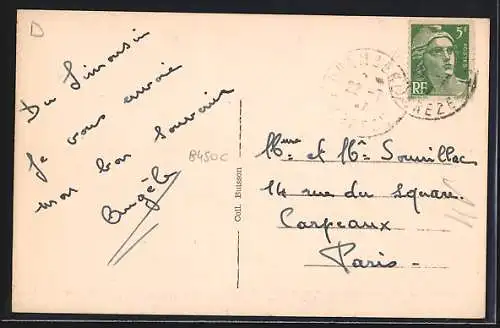 D
Du Limousin
Je vous envoie
mon bon souvenir
Angèle
8450C
Coll. Buisson
5F
RF
REZE
Mme et Mr Souillac
14 rue du square
Carpeaux
Paris -